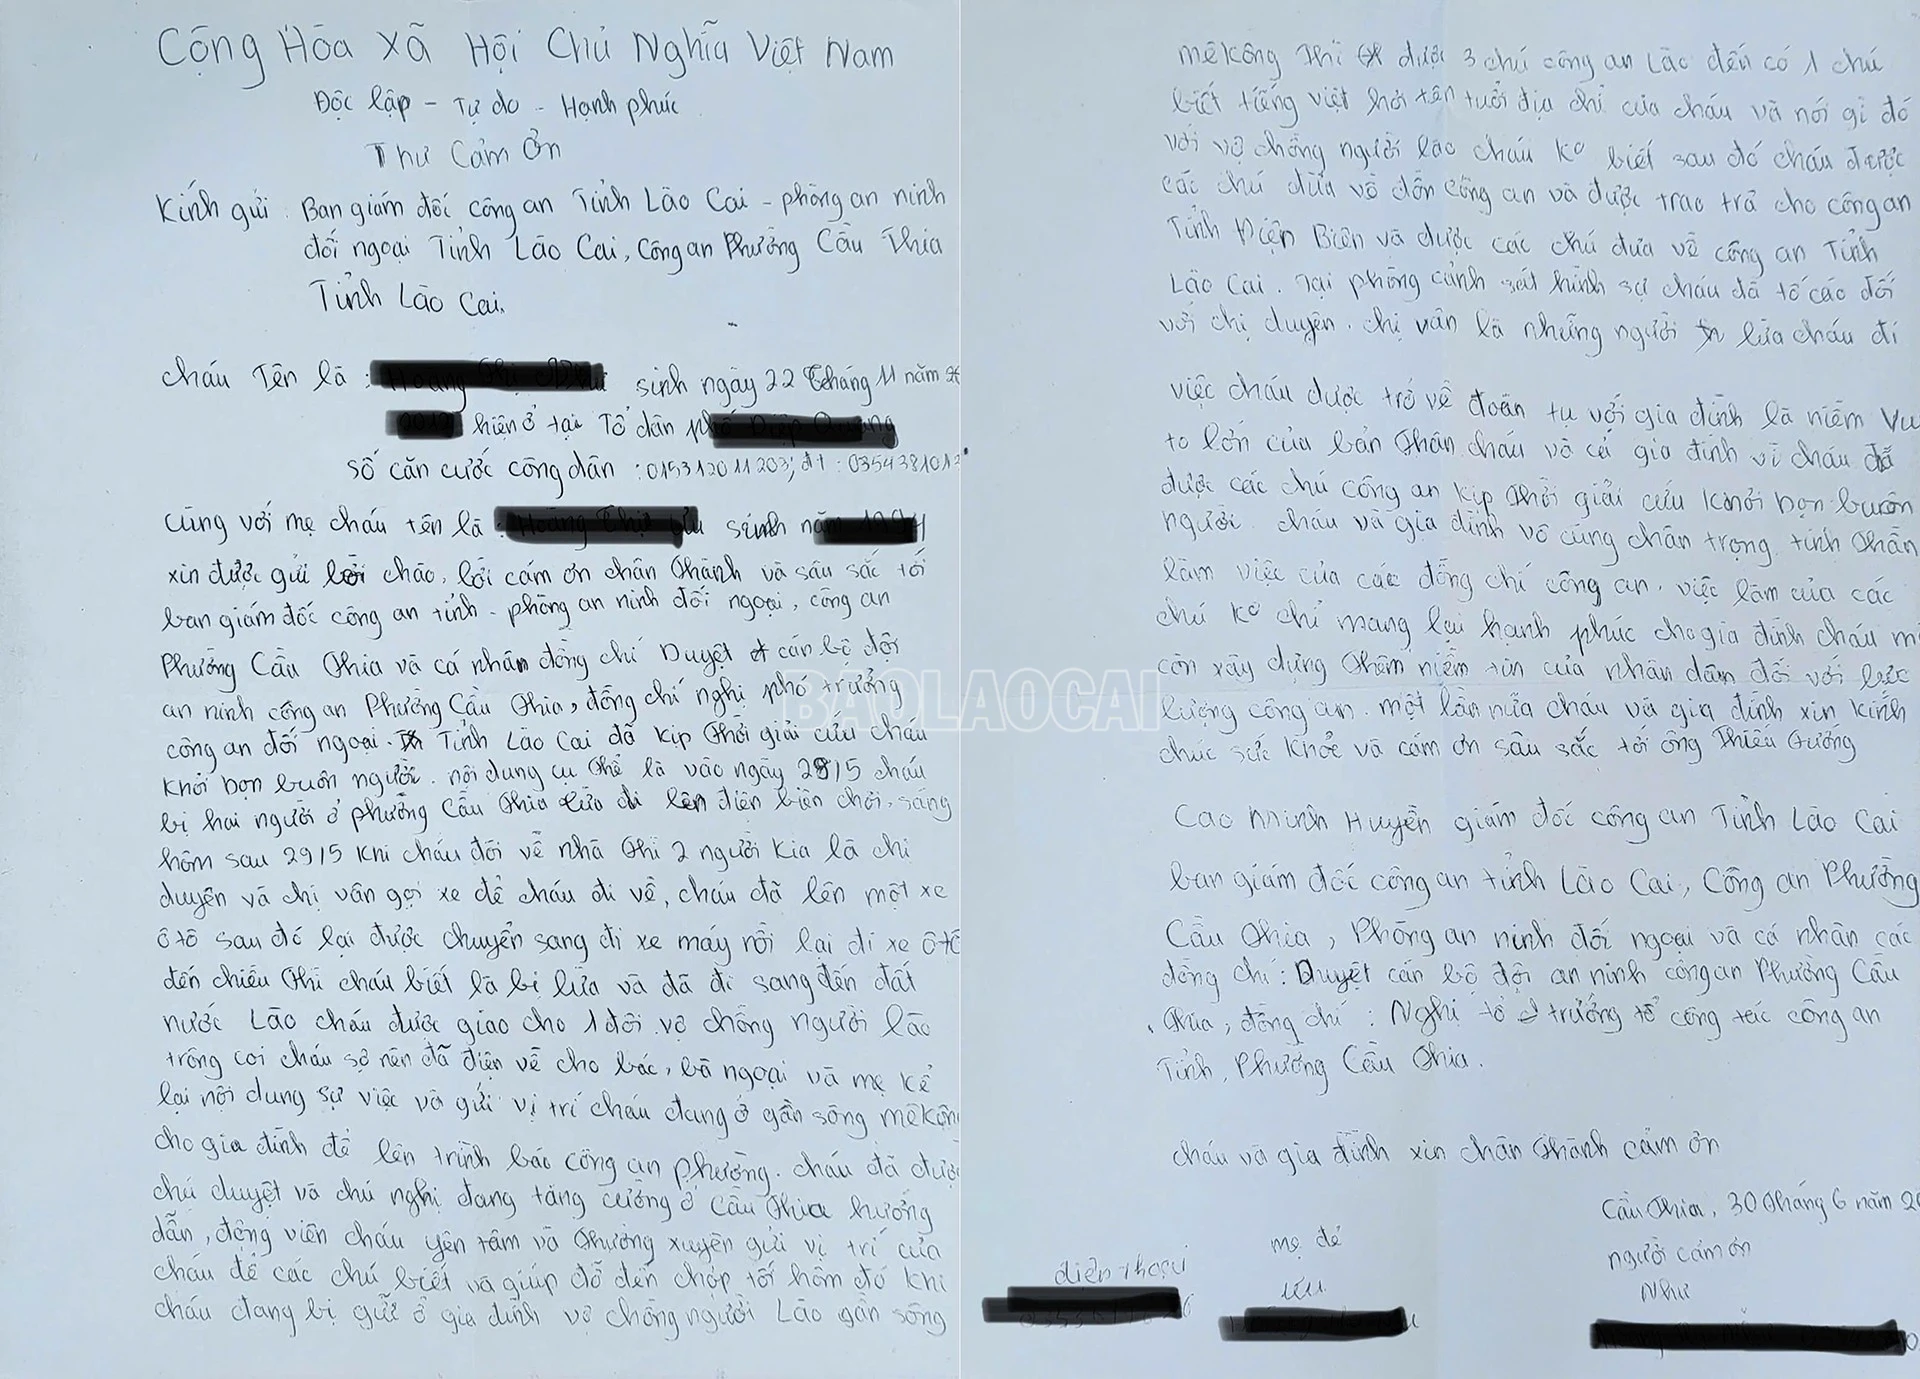 Cộng Hòa Xã Hội Chủ Nghĩa Việt Nam
Độc lập - Tự do - Hạnh phúc
Thư Cảm Ơn
Kính gửi : Ban giám đốc công an Tỉnh Lào Cai - phòng an ninh
đối ngoại Tỉnh Lào Cai, Công an Phường Cầu Thia
Tỉnh Lào Cai.
cháu Tên là : sinh ngày 22 tháng 11 năm
hiện ở tại Tổ dân
số căn cước công dân : đt :
cùng với mẹ cháu tên là : sinh
xin được gửi lời chào, lời cám ơn chân thành và sâu sắc tới
ban giám đốc công an tỉnh - phòng an ninh đối ngoại, công an
Phường Cầu Thia và cá nhân đồng chí Duyệt cán bộ đội
an ninh công an Phường Cầu Thia, đồng chí nghị phó trưởng
công an đối ngoại. Tỉnh Lào Cai đã kịp thời giải cứu cháu
khỏi bọn buôn người. nội dung cụ thể là vào ngày 28/5 cháu
bị hai người ở phường Cầu Thia lừa đi lên điện biên chơi, sáng
hôm sau 29/5 khi cháu đòi về nhà thì 2 người kia là chị
duyên và chị vân gọi xe để cháu đi về, cháu đã lên một xe
ô tô sau đó lại được chuyển sang đi xe máy rồi lại đi xe ô tô
đến chiều thì cháu biết là bị lừa và đã đi sang đến đất
nước Lào cháu được giao cho 1 đôi vợ chồng người lào
trông coi cháu sợ nên đã điện về cho bác, bà ngoại và mẹ kể
lại nội dung sự việc và gửi vị trí cháu đang ở gần sông mêkông
cho gia đình để lên trình báo công an phường. cháu đã được
chú duyệt và chú nghị đang tăng cường ở Cầu Thia hướng
dẫn, động viên cháu yên tâm và thường xuyên gửi vị trí của
cháu để các chú biết và giúp đỡ đến chập tối hôm đó khi
cháu đang bị giữ ở gia đình vợ chồng người Lào gần sông
mêkông thì được 3 chú công an Lào đến có 1 chú
biết tiếng việt hỏi tên tuổi địa chỉ của cháu và nói gì đó
với vợ chồng người lào cháu ko biết sau đó cháu được
các chú đưa về đồn công an và được trao trả cho công an
Tỉnh Điện Biên và được các chú đưa về công an Tỉnh
Lào Cai. Tại phòng cảnh sát hình sự cháu đã tố cáo đối
với chị duyên. chị vân là những người lừa cháu đi
việc cháu được trở về đoàn tụ với gia đình là niềm vui
to lớn của bản thân cháu và cả gia đình vì cháu đã
được các chú công an kịp thời giải cứu khỏi bọn buôn
người. cháu và gia đình vô cùng chân trọng tinh thần
làm việc của các đồng chí công an. việc làm của các
chú ko chỉ mang lại hạnh phúc cho gia đình cháu mà
còn xây dựng thêm niềm tin của nhân dân đối với lực
lượng công an. một lần nữa cháu và gia đình xin kính
chúc sức khỏe và cám ơn sâu sắc tới ông Thiếu tướng
Cao Minh Huyền giám đốc công an Tỉnh Lào Cai
ban giám đốc công an tỉnh Lào Cai, Công an Phường
Cầu Thia, Phòng an ninh đối ngoại và cá nhân các
đồng chí : Duyệt cán bộ đội an ninh công an Phường Cầu
Thia, đồng chí : Nghị tổ trưởng tổ công tác công an
Tỉnh, Phường Cầu Thia.
cháu và gia đình xin chân thành cảm ơn
Cầu Thia, 30 tháng 6 năm
người cám ơn
Như
mẹ đẻ
điện thoại
BAOLAOCAI